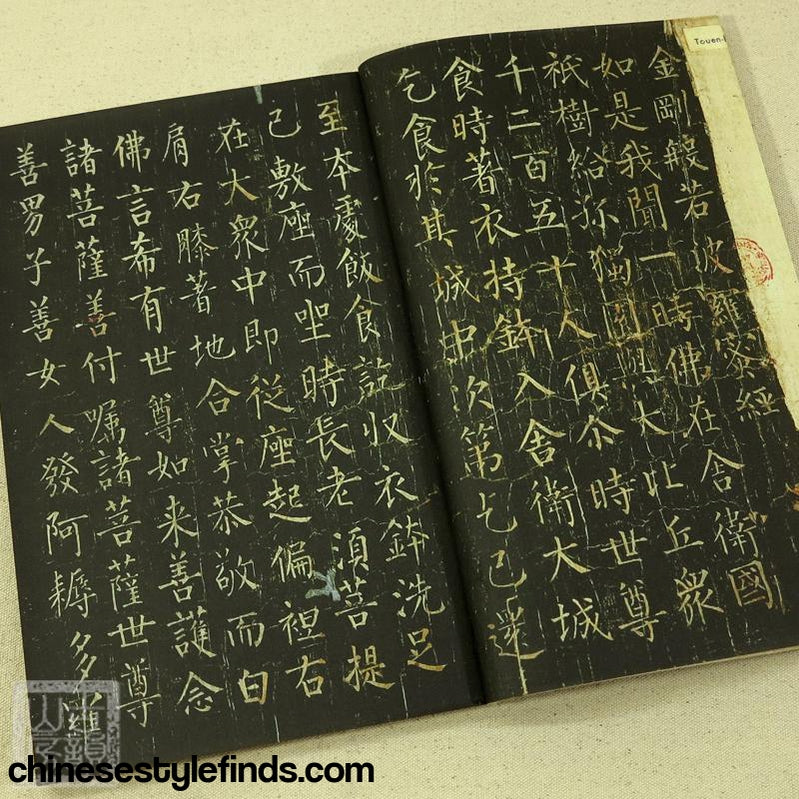 Touen-
金剛般若波羅蜜經
如是我聞一時佛在舍衛國
祇樹給孤獨園與大比丘眾
千二百五十人俱尒時世尊
食時著衣持鉢入舍衛大城
乞食扵其城中次第乞已還
至本處飯食訖收衣鉢洗足
已敷座而坐時長老須菩提
在大眾中即從座起偏袒右
肩右膝著地合掌恭敬而白
佛言希有世尊如来善護念
諸菩薩善付嘱諸菩薩世尊
善男子善女人發阿耨多羅
chinesestylefinds.com